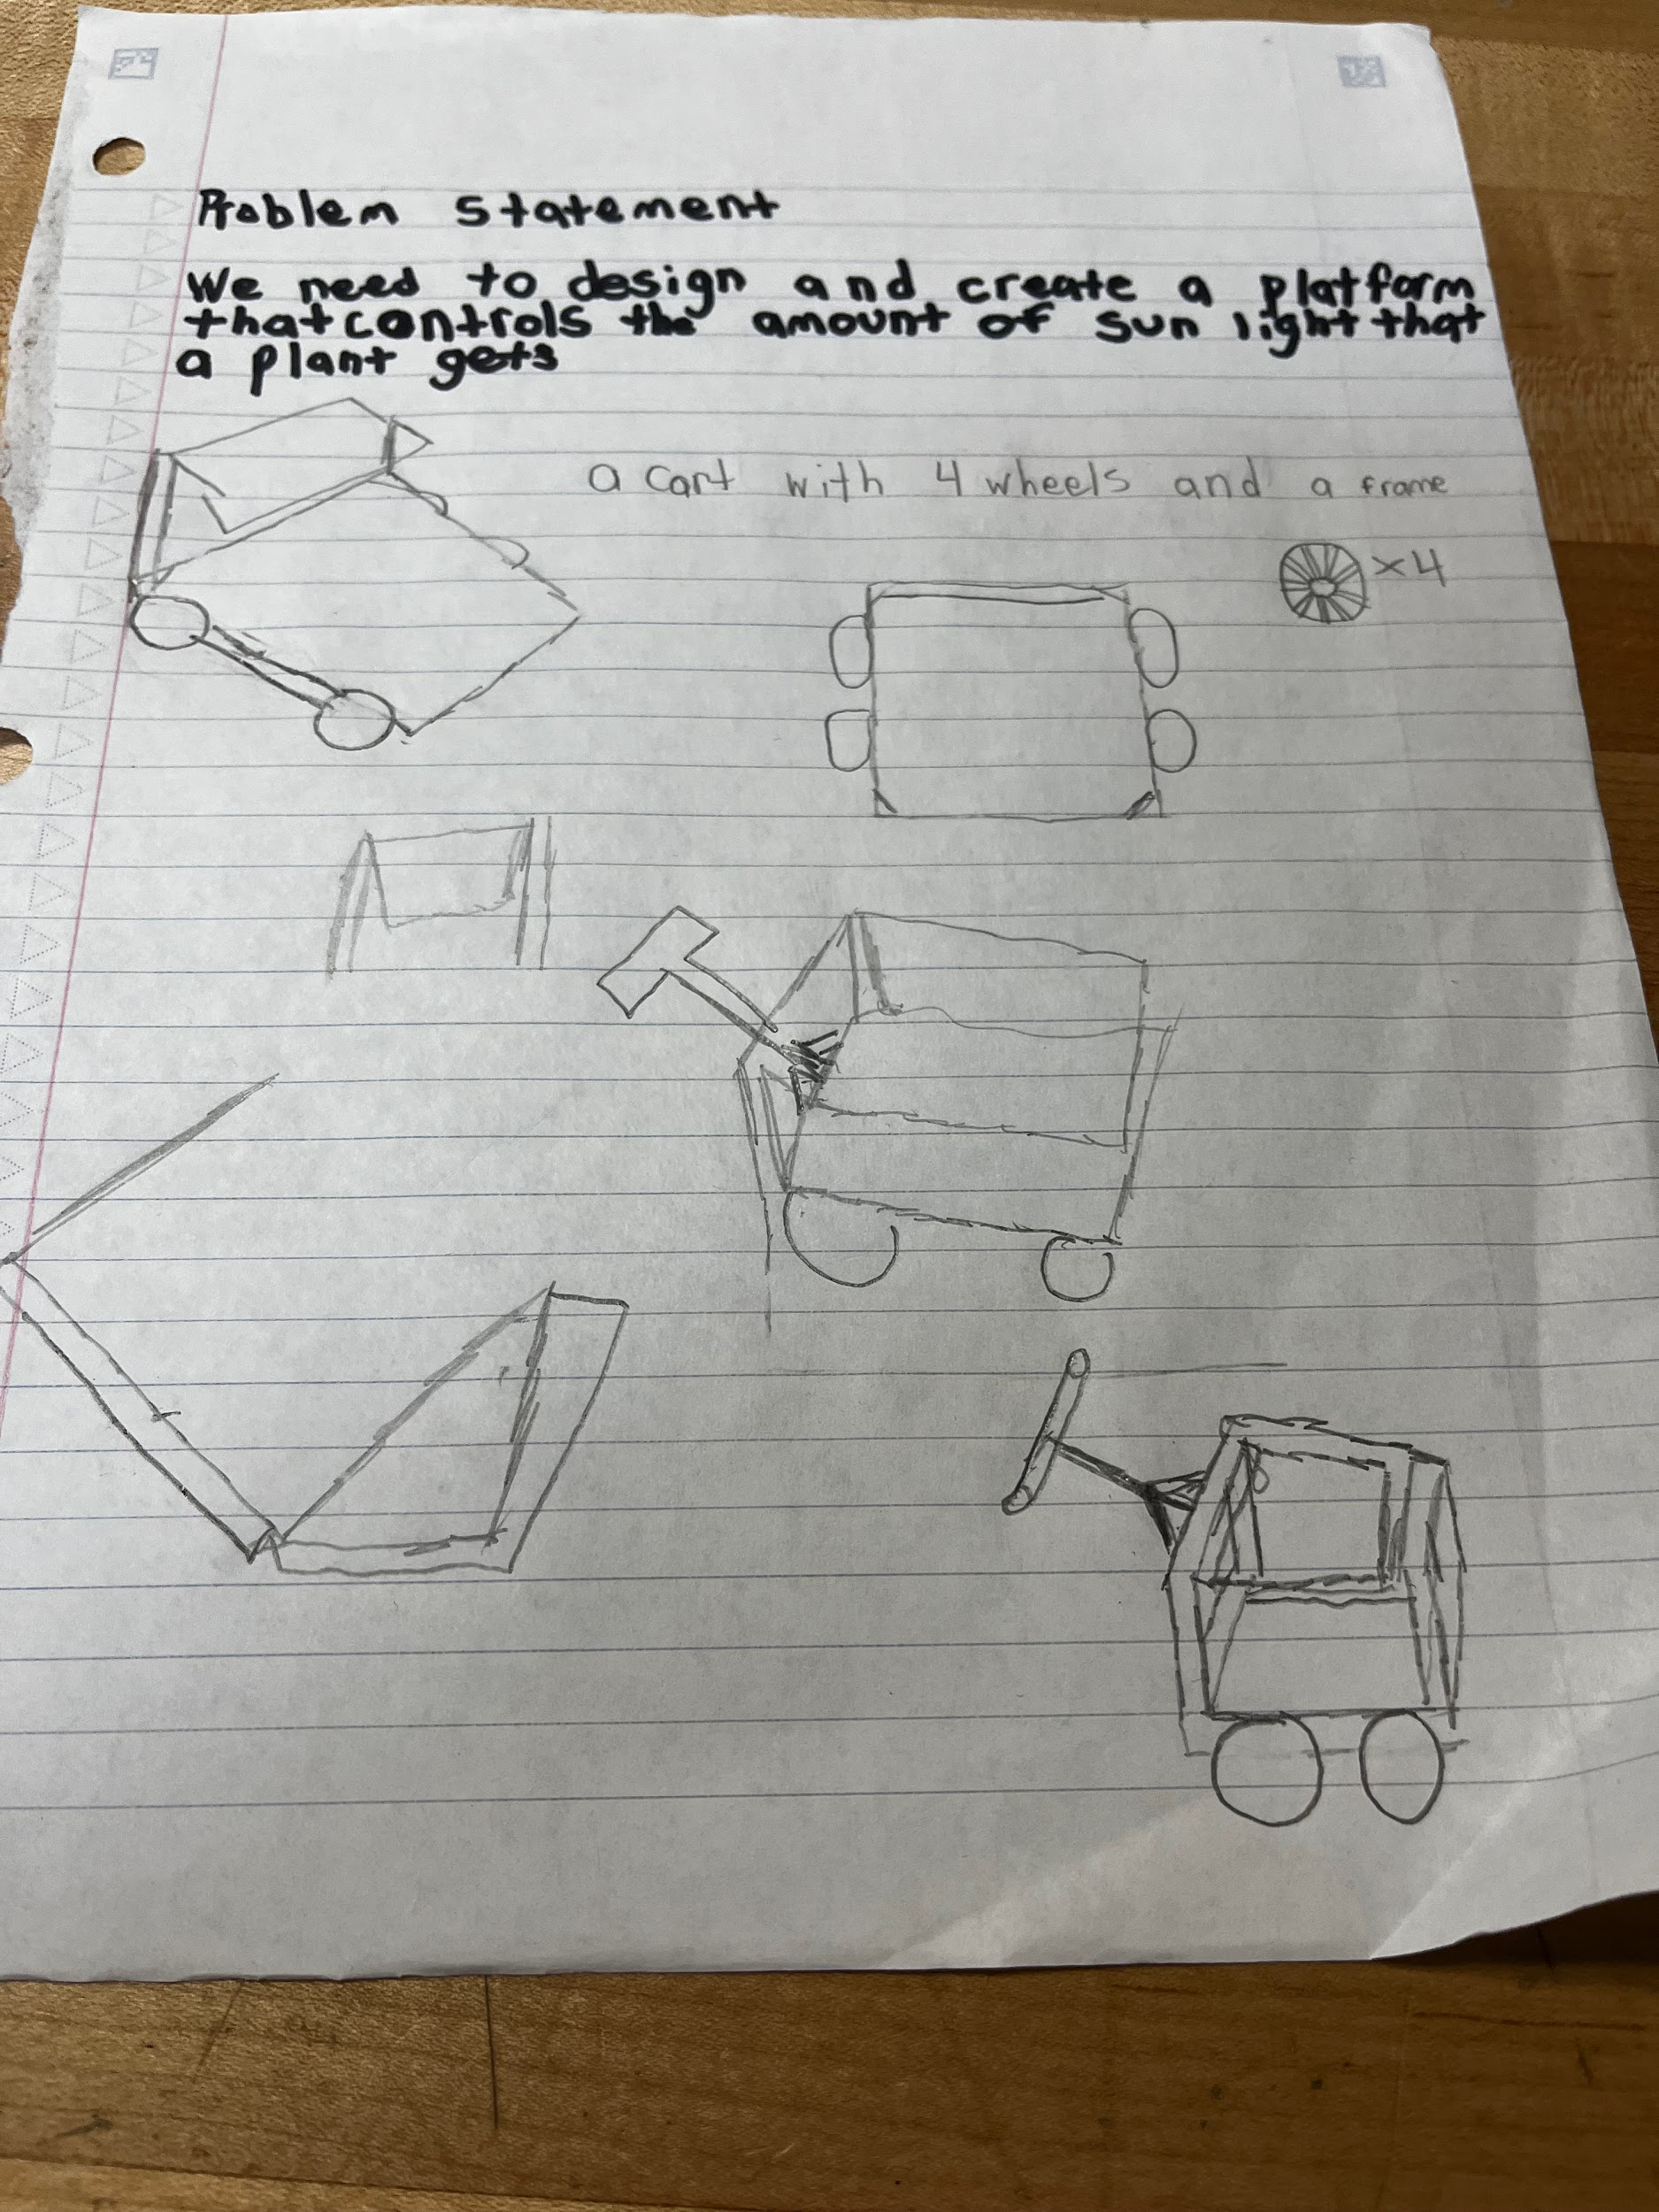 Problem statement
We need to design and create a platform
that controls the amount of sun light that
a plant gets
a cart with 4 wheels and a frame
×4